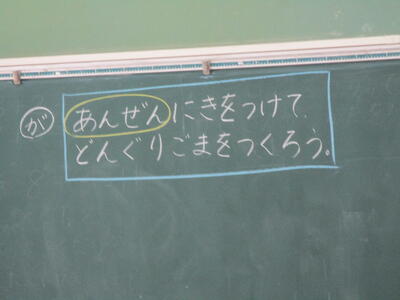 が
あんぜんにきをつけて、
どんぐりごまをつくろう。